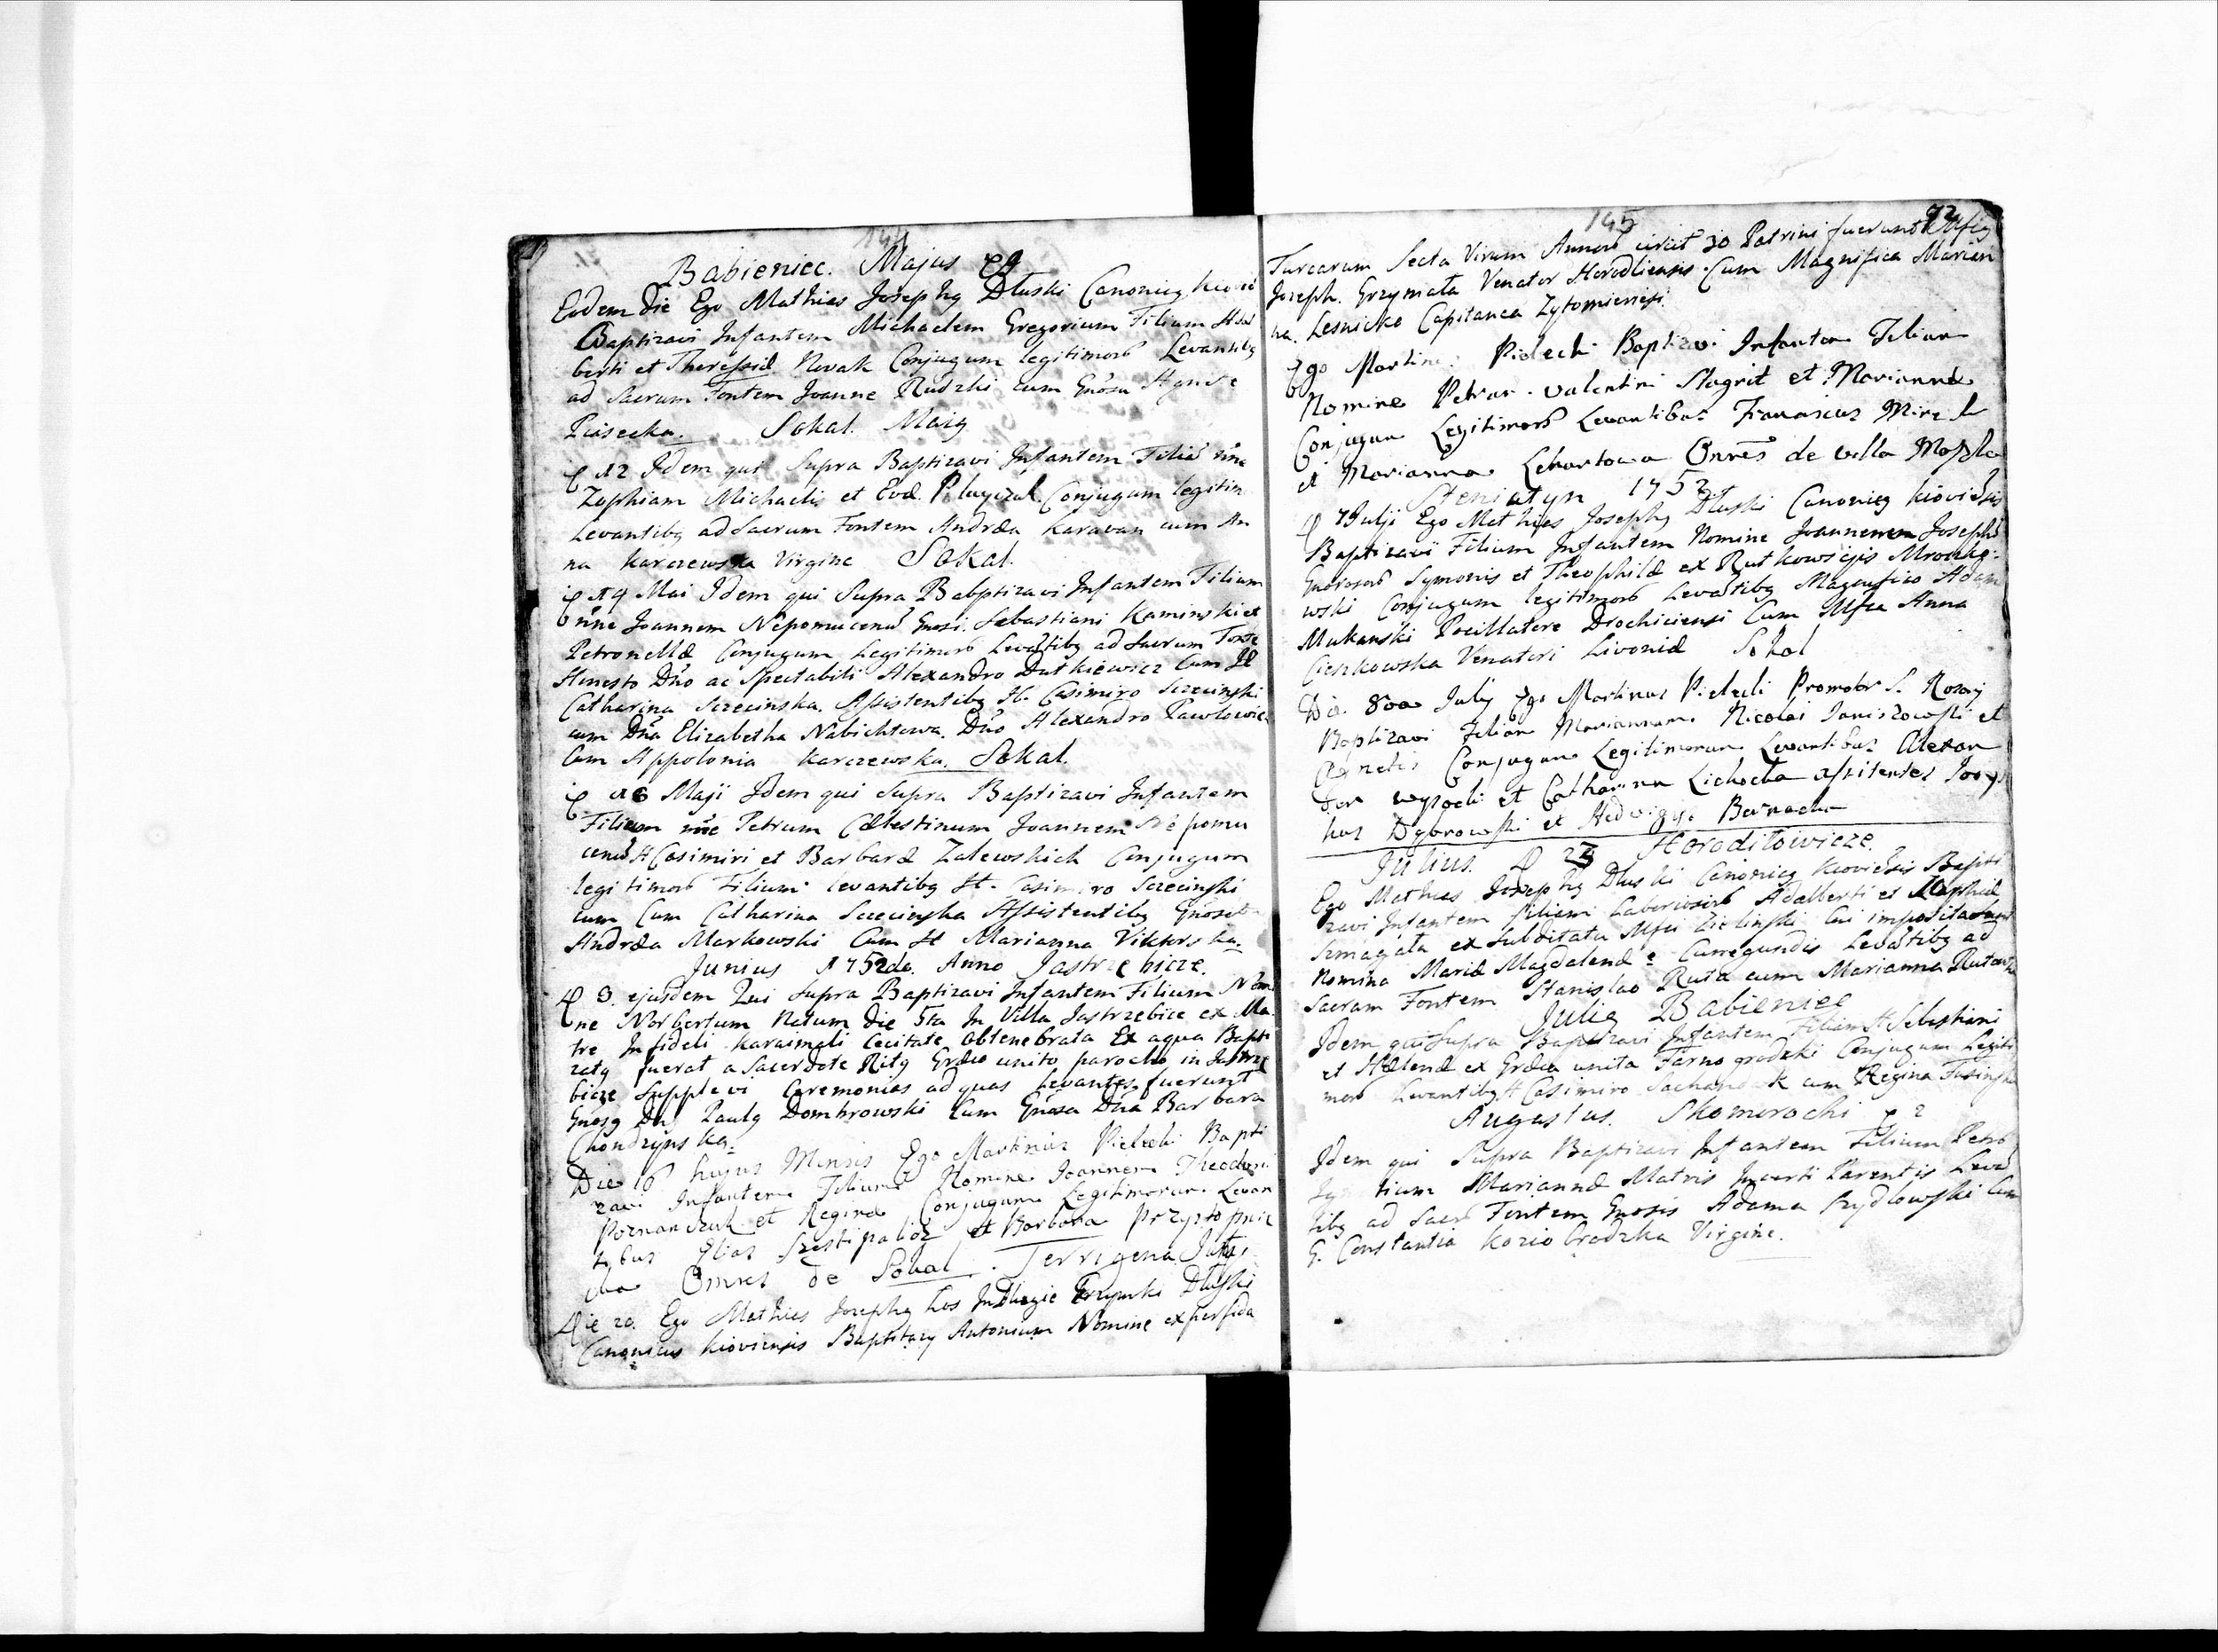 144
Babieniec. Majus
Eodem die Ego Mathias Josephg Dłuski Canonicg kiovie
Baptizavi Infantem Michaelem Gregorium Filium Adal
berti et Theressiæ Novak Conjugum legitimorũ Levantibg
ad Sacrum Fontem Joanne Rudzki cum Gnosa Agnete
Piasecka. Sokal. Maig
12 Idem qui Supra Baptizavi Infantem Filiã nñe
Zophiam Michaeli et Evæ Conjugum legitim
Levantibg ad Sacrum Fontem Andræa Karavan cum An
na Karczewska Virgine Sokal.
14 Mai Idem qui Supra Babptizavi Infantem Filium
nñe Joannem Nepomucenũ Gnosi. Sebastiani Kaminski et
Petronellæ Conjugum Legitimorũ Levãtibg ad Sacrum Fonte
Honesto Dño ac Spectabili Alexandro Dutkiewicz Cum
Catharina Szczecinska. Assistentibg H. Casimiro Szczecinski
cum Dña Elizabetha Nabichtowa. Dño Alexandro Pawłowic
Cum Appolonia Karczewska. Sokal.
16 Maji Idem qui Supra Baptizavi Infantem
Filium nñe Petrum Cælestinum Joannem Nepomu
cenũ H Casimiri et Barbaræ Zalewskich Conjugum
legitimorũ Filium levantibg H. Casimiro Szczecinski
cum Cum Catharina Szczecinska Assistentibg
Andræa Markowski Cum H Marianna Viktorska.
Junius 1752do. Anno Jastrzebicze.
3. ejusdem Qui Supra Baptizavi Infantem Filium Nomi
ne Norbertum Natum die 5ta In Villa Jastrzebice ex Ma
tre Infideli Karaimali Cecitate obtenebrata Ex aqua Bapti
zatg fuerat a Sacerdote Ritg Græco unito parocho in Jastrzę
bicze Supplevi Ceremonias ad quas Levantes fuerunt
Gnosg Dñg Paulg Dombrowski Cum Gnosa Dña Barbara
Chondzynska.
Die 16 hujus Mensis Ego Martinus Pielecki Bapti
zavi Infantem Filium Nomine Joannem Theodori
Poznanczuk et Reginæ Conjugum Legitimorum Levan
tibus Elias et Barbara
Omnes de Sokal. Terrigena
Die 20. Ego Mathias Josephg Dłuski
Canonicus kioviensis Baptizavy Antonium Nomine ex perfida
145
Turcarum Secta Virum Annorũ circit 30 Patrini fuerunt Mfcg
Joseph. Grzymała Venator Horodliensis Cum Magnifica Marian
na. Lesnicka Capitanea Zytomiriensi.
Ego Martinu Pielecki Baptizavi Infantem Filium
Nomine Petrum Valentini et Mariannæ
Conjugum Legitimorũ Levantibus Franciscus
et Marianna Lekartowa Omnes de villa
Steniatyn 1752
7 Julji Ego Mathias Josephg Dłuski Canonicg kioviẽsis
Baptizavi Filium Infantem Nomine Joannem Josephũ
Gnerosorũ Symonis et Theophilæ ex Rutkowscijs Mroczko
wski Conjugum legitimorũ Levãtibg Magnifico Adam
Mukanski Pocillatore Drochiciensi Cum Mfca Anna
Cieszkowska Venatori Livoniæ Sokal
Die 8va July Ego Martinus Pielecki Promotor S. Rosarij
Baptizavi Filiam Mariannam Nicolai Janiszowski et
Agnetis Conjugum Legitimorum Levantibus Alexan
der Wysocki et Catharina Lichocka assitentes
Dąbrowski et Hedvigis
Julius. 23 Horoditowicze.
Ego Mathias Josephg Dłuski Canonicg kioviẽsis Bapti
zavi Infantem filiam Laboriosorũ Adalberti et
Szmagała ex Subditata Mfci Zielinski Cui imposita
Nomina Mariæ Magdalenæ e Cunegundis Levãtibg ad
Sacrum Fontem Stanislao Ruta cum Marianna
Julig Babieniec
Idem qui Supra Baptizavi Infantem Filium H Sebastiani
et Hælenæ ex Græca unita Tarnogrodzki Conjugum Legiti
morũ Levantibg H Casimiro cum Regina
Augustus. Skomorochi 2
Idem qui Supra Baptizavi Infantem Filium Petrũ
Mariannæ Matris Incerti Parentis Levã
tibg ad Sacrũ Fontem Gnosis Adama Rydlowski Cum
G. Constantia Koziobrodzka Virgine.